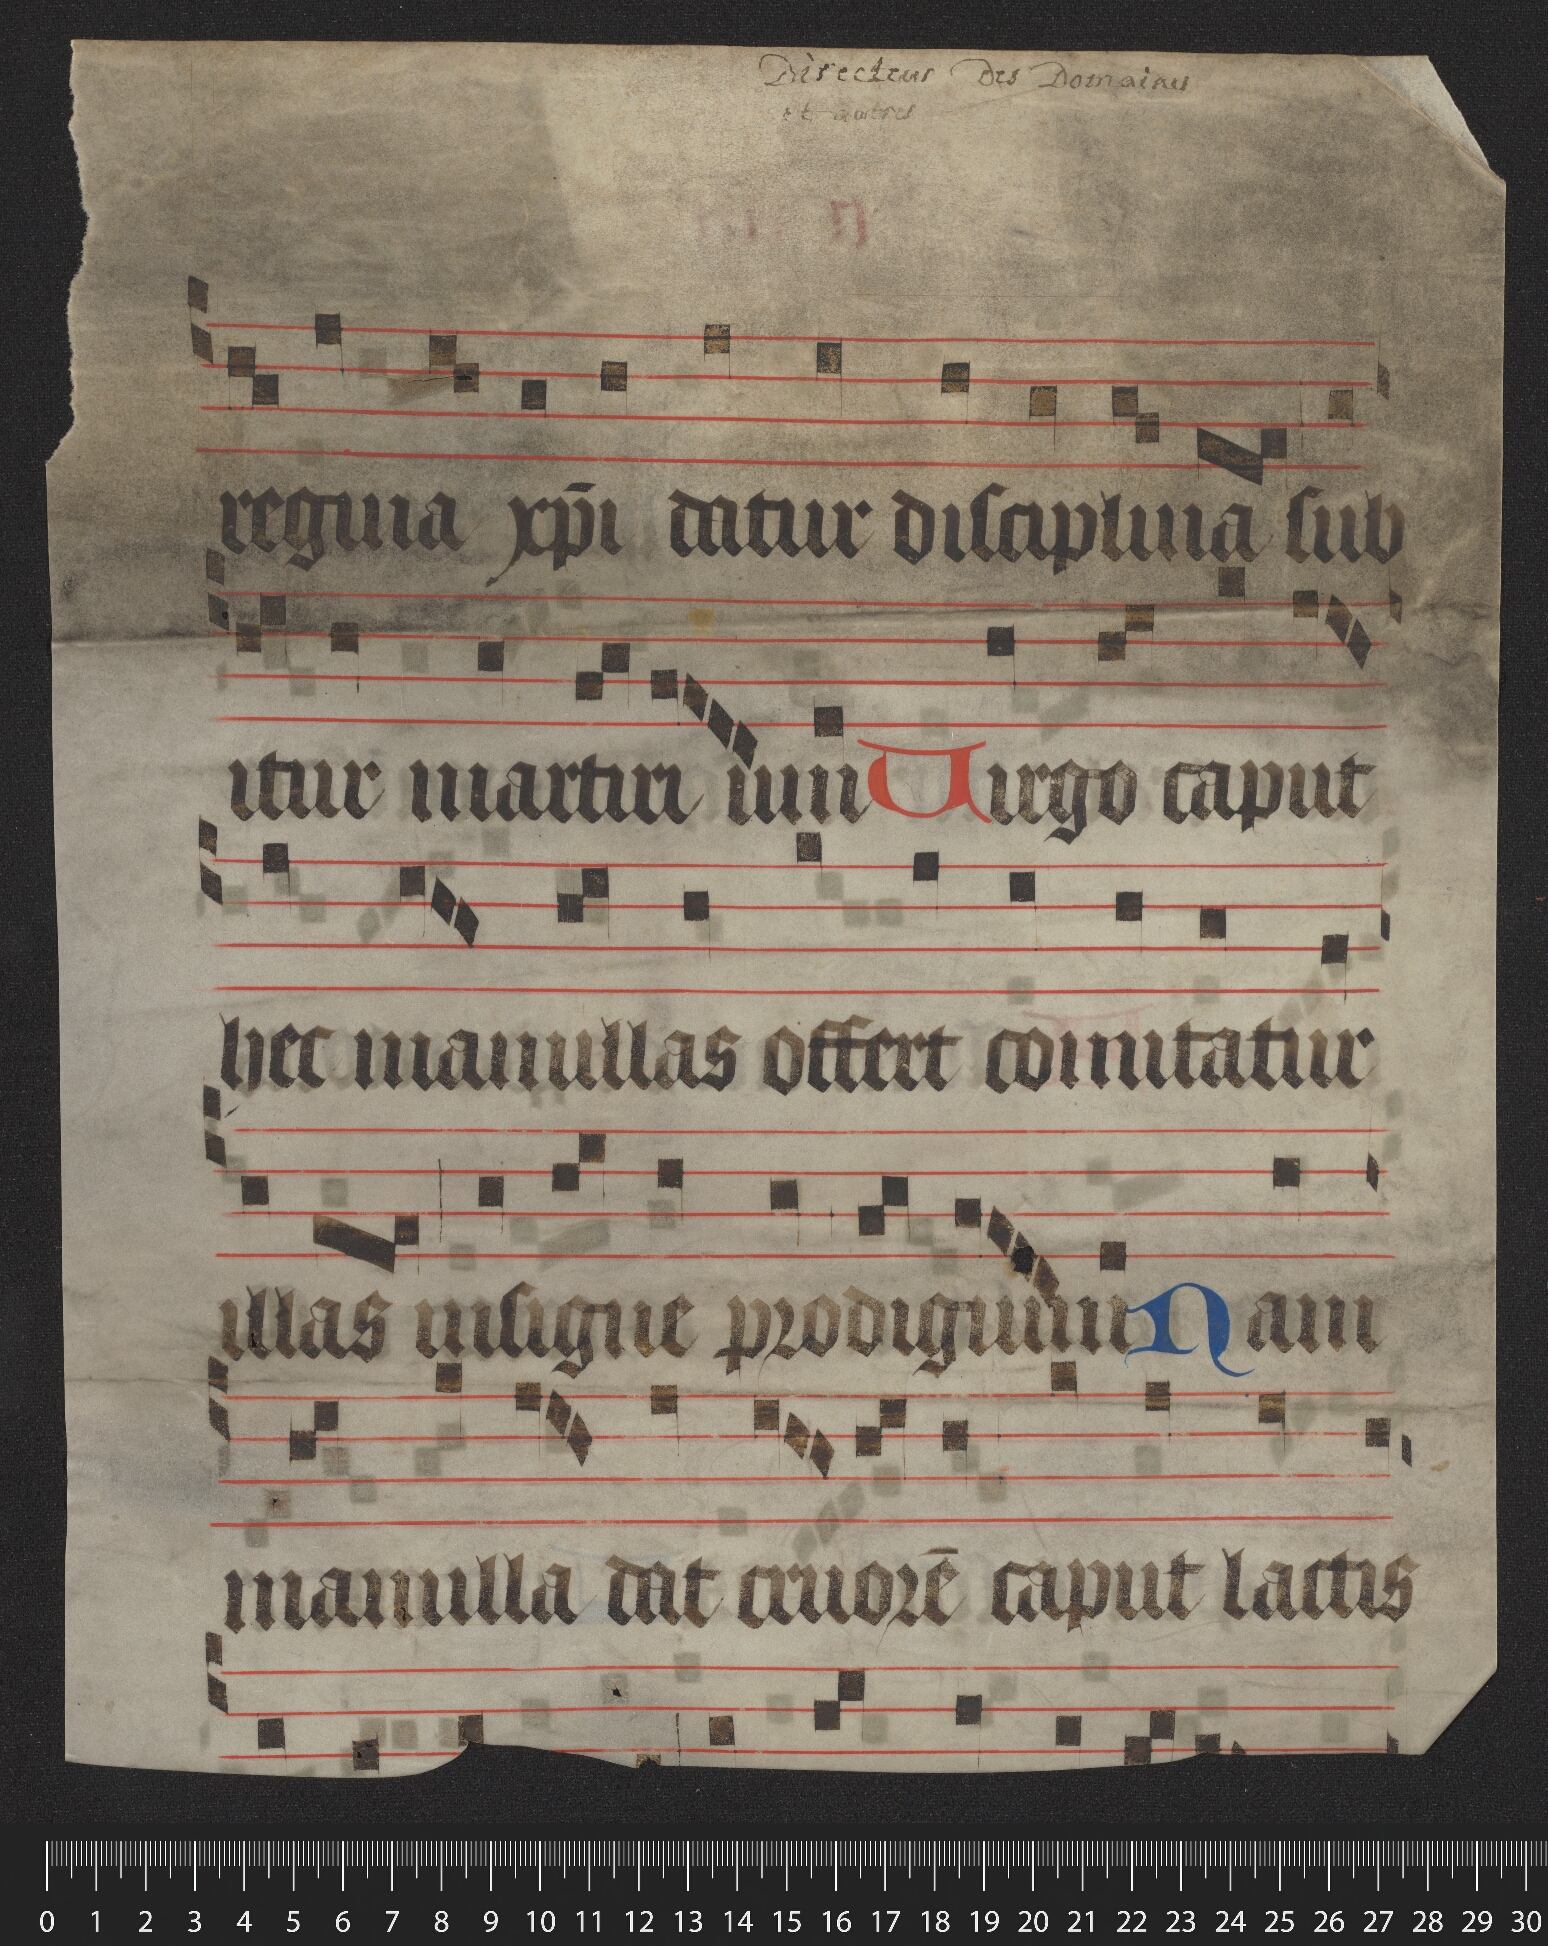 Directeur Des Domaines
et autres
regina xp̄i datur disciplina sub
itur martiri um Virgo caput
hec mamillas offert comitatur
illas insigne prodigium Nam
mamilla dat cruorē caput lactis
0 1 2 3 4 5 6 7 8 9 10 11 12 13 14 15 16 17 18 19 20 21 22 23 24 25 26 27 28 29 30